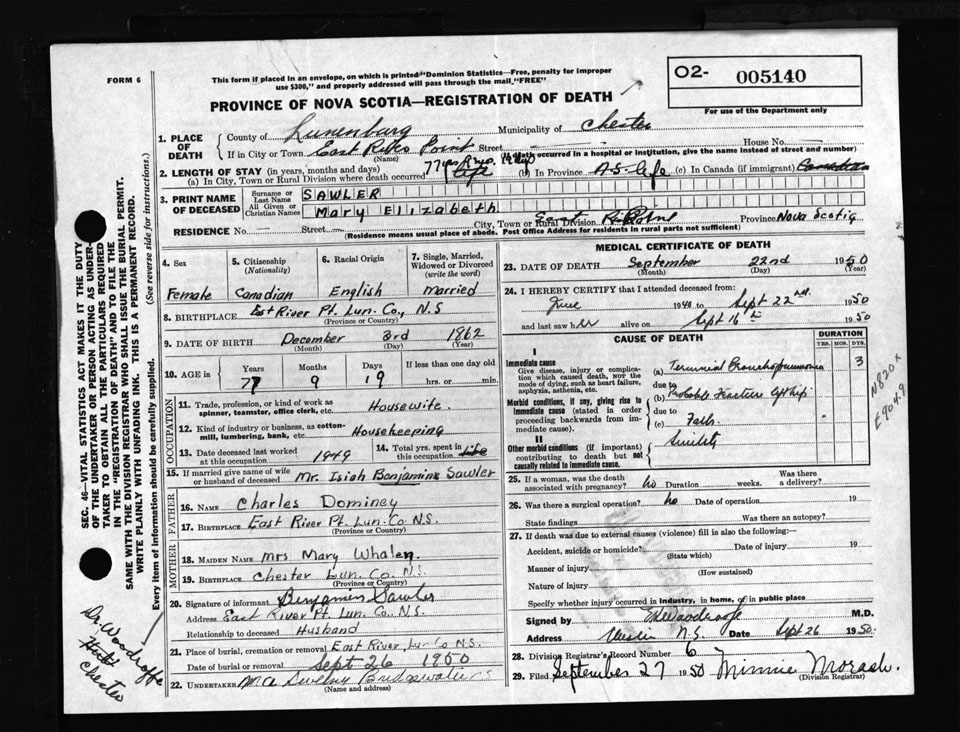 FORM 6
This form if placed in an envelope, on which is printed "Dominion Statistics—Free, penalty for improper
use $300," and properly addressed will pass through the mail, "FREE"
PROVINCE OF NOVA SCOTIA—REGISTRATION OF DEATH
O2- 005140
For use of the Department only
SEC. 46—VITAL STATISTICS ACT MAKES IT THE DUTY
OF THE UNDERTAKER OR PERSON ACTING AS UNDER-
TAKER TO OBTAIN ALL THE PARTICULARS REQUIRED
IN THE "REGISTRATION OF DEATH" AND TO FILE THE
SAME WITH THE DIVISION REGISTRAR WHO SHALL ISSUE THE BURIAL PERMIT.
WRITE PLAINLY WITH UNFADING INK. THIS IS A PERMANENT RECORD.
Every item of information should be carefully supplied. (See reverse side for instructions.)
1. PLACE OF DEATH County of Lunenburg Municipality of Chester
If in City or Town East River Point Street House No.
(Name) (If death occurred in a hospital or institution, give the name instead of street and number)
2. LENGTH OF STAY (in years, months and days) 77 yrs 9 mo. 19 days
(a) In City, Town or Rural Division where death occurred Life (b) In Province N.S. Life (c) In Canada (if immigrant) Canadian
3. PRINT NAME OF DECEASED Surname or Last Name SAWLER
All Given or Christian Names Mary Elizabeth
RESIDENCE No. Street City, Town or Rural Division East R. Point Province Nova Scotia
(Residence means usual place of abode. Post Office Address for residents in rural parts not sufficient)
4. Sex Female
5. Citizenship (Nationality) Canadian
6. Racial Origin English
7. Single, Married, Widowed or Divorced (write the word) Married
8. BIRTHPLACE East River Pt. Lun. Co., N.S
(Province or Country)
9. DATE OF BIRTH December 3rd 1862
(Month) (Day) (Year)
10. AGE in Years 77 Months 9 Days 19 If less than one day hrs. or min.
OCCUPATION
11. Trade, profession, or kind of work as spinner, teamster, office clerk, etc. Housewife.
12. Kind of industry or business, as cotton-mill, lumbering, bank, etc. Housekeeping
13. Date deceased last worked at this occupation 1949 14. Total yrs. spent in this occupation Life
15. If married give name of wife or husband of deceased Mr. Isiah Benjamine Sawler
FATHER
16. NAME Charles Dominey
17. BIRTHPLACE East River Pt. Lun. Co. N.S.
(Province or Country)
MOTHER
18. MAIDEN NAME Mrs Mary Whalen.
19. BIRTHPLACE Chester Lun. Co. N.S.
(Province or Country)
20. Signature of informant Benjamin Sawler
Address East River Pt. Lun. Co., N.S.
Relationship to deceased Husband
21. Place of burial, cremation or removal East River, Lun Co N.S.
Date of burial or removal Sept 26 1950
22. UNDERTAKER Bridgewater N.S
(Name and address)
MEDICAL CERTIFICATE OF DEATH
23. DATE OF DEATH September 22nd 1950
(Month) (Day) (Year)
24. I HEREBY CERTIFY that I attended deceased from:
June 1940 to Sept 22nd. 1950
and last saw her alive on Sept 16th 1950
CAUSE OF DEATH
DURATION
YRS. MOS. DYS.
I
Immediate cause
Give disease, injury or complication which caused death, not the mode of dying, such as heart failure, asphyxia, asthenia, etc.
(a) Terminal Bronchopneumonia 3
due to
Morbid conditions, if any, giving rise to immediate cause (stated in order proceeding backwards from immediate cause).
(b) Probable Fracture left hip
due to
(c) Falls.
II
Other morbid conditions (if important) contributing to death but not causally related to immediate cause.
Senility
N820 +
E904.9
25. If a woman, was the death associated with pregnancy? no Duration weeks. Was there a delivery?
26. Was there a surgical operation? no Date of operation 19
State findings Was there an autopsy?
27. If death was due to external causes (violence) fill in also the following:
Accident, suicide or homicide? Date of injury 19
(State which)
Manner of injury
(How sustained)
Nature of injury
Specify whether injury occurred in industry, in home, or in public place
Signed by Woodroofe M.D.
Address N.S. Date Sept 26 1950.
28. Division Registrar's Record Number 6
29. Filed September 27 1950 Minnie Morash.
(Division Registrar)
Dr. Woodroffe
Chester